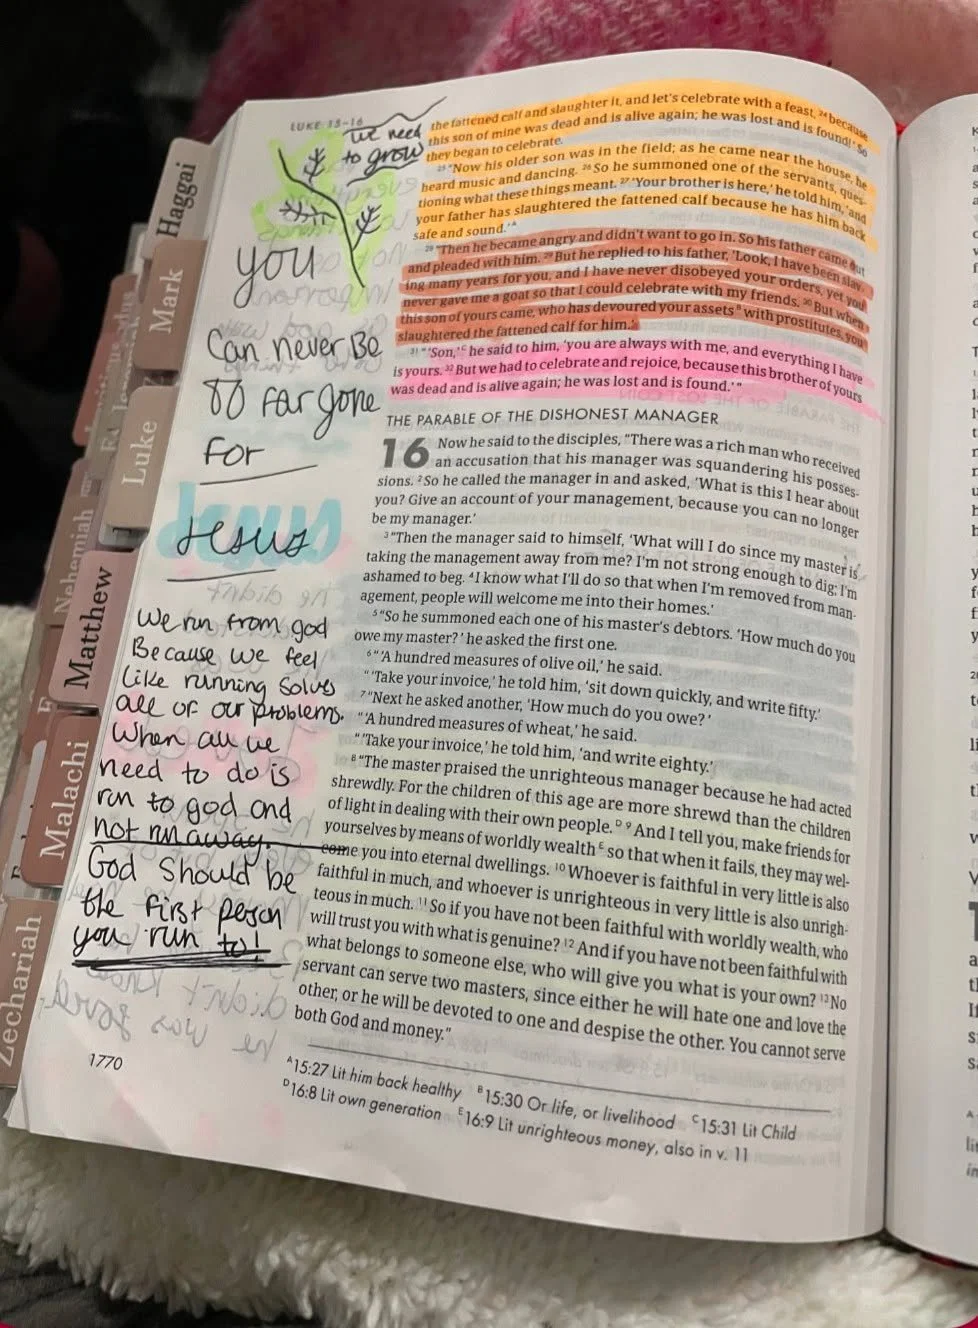 LUKE 15–16
we need
to grow
you
Can never Be
TO far gone
For
Jesus
We run from god
Because we feel
like running solves
all of our problems.
When all we
need to do is
run to god and
not run away.
God should be
the first person
you run to!
1770
Haggai
Mark
Luke
Nehemiah
Matthew
Malachi
Zechariah
the fattened calf and slaughter it, and let's celebrate with a feast, ²⁴ because
this son of mine was dead and is alive again; he was lost and is found!' So
they began to celebrate.
²⁵ "Now his older son was in the field; as he came near the house, he
heard music and dancing. ²⁶ So he summoned one of the servants, ques-
tioning what these things meant. ²⁷ 'Your brother is here,' he told him, 'and
your father has slaughtered the fattened calf because he has him back
safe and sound.'ᴬ
²⁸ "Then he became angry and didn't want to go in. So his father came out
and pleaded with him. ²⁹ But he replied to his father, 'Look, I have been slav-
ing many years for you, and I have never disobeyed your orders, yet you
never gave me a goat so that I could celebrate with my friends. ³⁰ But when
this son of yours came, who has devoured your assetsᴮ with prostitutes, you
slaughtered the fattened calf for him.'
³¹ "'Son,'ᶜ he said to him, 'you are always with me, and everything I have
is yours. ³² But we had to celebrate and rejoice, because this brother of yours
was dead and is alive again; he was lost and is found.'"
THE PARABLE OF THE DISHONEST MANAGER
16 Now he said to the disciples, "There was a rich man who received
an accusation that his manager was squandering his posses-
sions. ² So he called the manager in and asked, 'What is this I hear about
you? Give an account of your management, because you can no longer
be my manager.'
³ "Then the manager said to himself, 'What will I do since my master is
taking the management away from me? I'm not strong enough to dig; I'm
ashamed to beg. ⁴ I know what I'll do so that when I'm removed from man-
agement, people will welcome me into their homes.'
⁵ "So he summoned each one of his master's debtors. 'How much do you
owe my master?' he asked the first one.
⁶ "'A hundred measures of olive oil,' he said.
"'Take your invoice,' he told him, 'sit down quickly, and write fifty.'
⁷ "Next he asked another, 'How much do you owe?'
"'A hundred measures of wheat,' he said.
"'Take your invoice,' he told him, 'and write eighty.'
⁸ "The master praised the unrighteous manager because he had acted
shrewdly. For the children of this age are more shrewd than the children
of light in dealing with their own people.ᴰ ⁹ And I tell you, make friends for
yourselves by means of worldly wealthᴱ so that when it fails, they may wel-
come you into eternal dwellings. ¹⁰ Whoever is faithful in very little is also
faithful in much, and whoever is unrighteous in very little is also unrigh-
teous in much. ¹¹ So if you have not been faithful with worldly wealth, who
will trust you with what is genuine? ¹² And if you have not been faithful with
what belongs to someone else, who will give you what is your own? ¹³ No
servant can serve two masters, since either he will hate one and love the
other, or he will be devoted to one and despise the other. You cannot serve
both God and money."
ᴬ 15:27 Lit him back healthy ᴮ 15:30 Or life, or livelihood ᶜ 15:31 Lit Child
ᴰ 16:8 Lit own generation ᴱ 16:9 Lit unrighteous money, also in v. 11